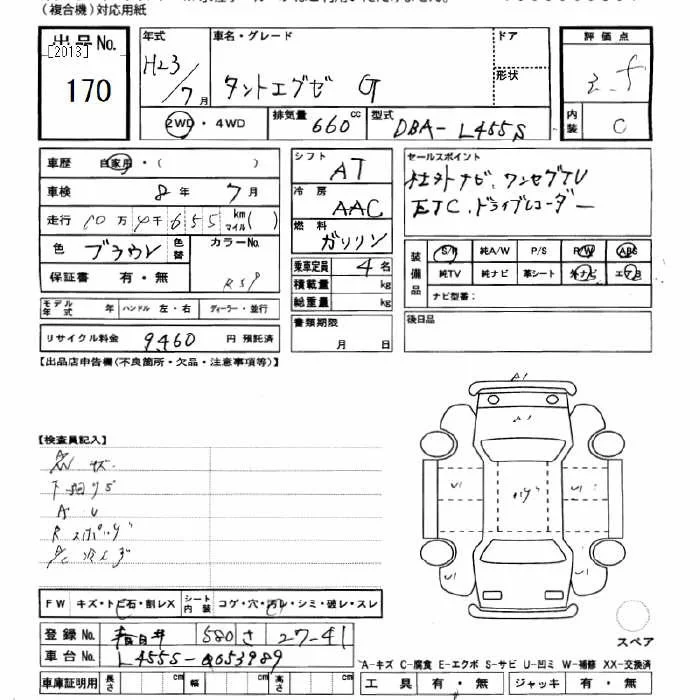 (複合機)対応用紙
出品No.
[2013]
170
年式 H23/7月
車名・グレード タントエグゼ G
ドア
形状
評価点 3.5
内装 C
2WD・4WD
排気量 660cc
型式 DBA-L455S
車歴 自家用・( )
車検 年 7月
走行 10万4千655 km マイル( )
色 ブラウン 色替
カラーNo. RSP
保証書 有・無
シフト AT
冷房 AAC
燃料 ガソリン
乗車定員 4名
積載量 kg
総重量 kg
書類期限 月 日
セールスポイント
社外ナビ、ワンセグTV
ETC、ドライブレコーダー
装備品 S/R 純A/W P/S P/W ABS
純TV 純ナビ 革シート 外ナビ エアB
ナビ型番:
後日品
モデル年式 年 ハンドル 左・右 ディーラー・並行
リサイクル料金 9460 円 預託済
【出品店申告欄(不良箇所・欠品・注意事項等)】
【検査員記入】
A U
A1
A1
U1
U1
U1
U1
FW キズ・トビ石・割レX シート内装 コゲ・穴・汚レ・シミ・破レ・スレ
スペア
登録No. 春日井 580 さ 27-41
車台No. L455S-0053989
A-キズ C-腐食 E-エクボ S-サビ U-凹ミ W-補修 XX-交換済
車庫証明用 長さ cm 幅 cm 高さ cm
工具 有・無 ジャッキ 有・無